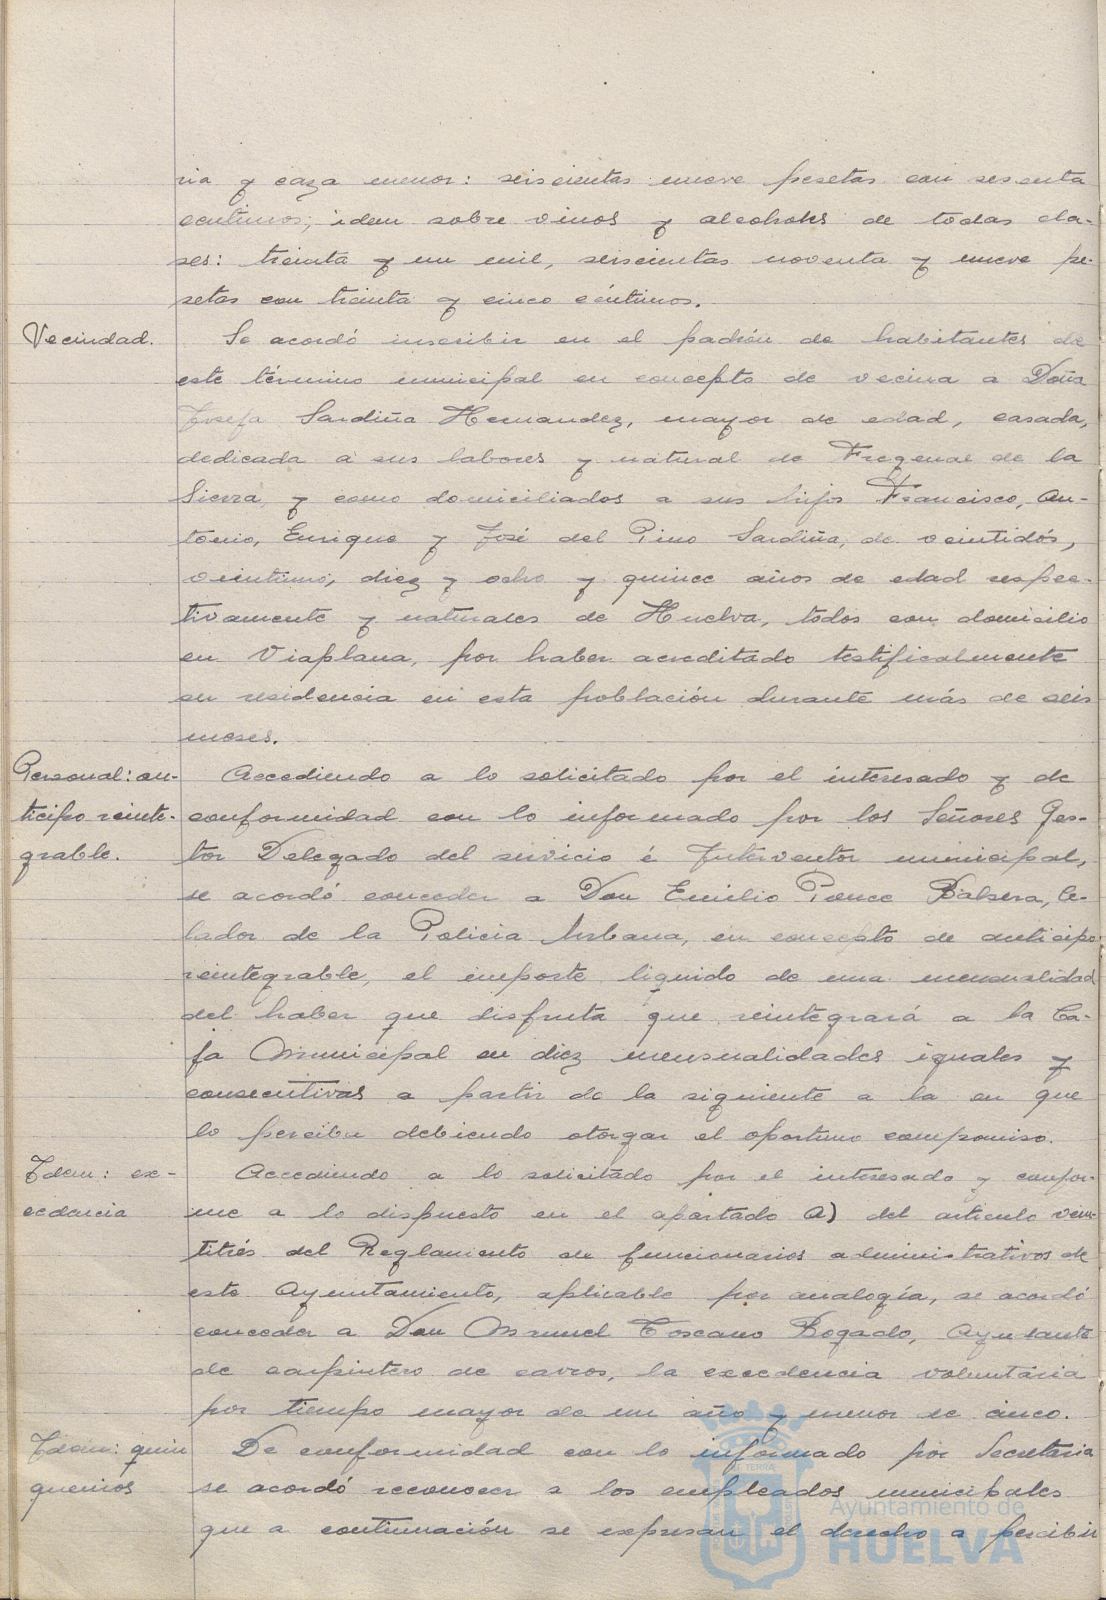 ria y caza menor: seiscientas nueve pesetas con sesenta
centimos; idem sobre vinos y alcoholes de todas cla-
ses: treinta y un mil, seiscientas noventa y nueve pe-
setas con treinta y cinco céntimos.
Vecindad.
Se acordó inscribir en el padrón de habitantes de
este término municipal en concepto de vecina a Doña
Josefa Sardiña Hernandez, mayor de edad, casada,
dedicada a sus labores y natural de Fregenal de la
Sierra, y como domiciliados a sus hijos Francisco, An-
tonio, Enrique y José del Pino Sardiña, de veintidós,
veintiuno, diez y ocho y quince años de edad respec-
tivamente y naturales de Huelva, todos con domicilio
en Viaplana, por haber acreditado testificalmente
su residencia en esta población durante más de seis
meses.
Personal: an-
ticipo reinte-
grable.
Accediendo a lo solicitado por el interesado y de
conformidad con lo informado por los Señores Ges-
tor Delegado del servicio é Interventor municipal,
se acordó conceder a Don Emilio Ponce Balsera, Ce-
lador de la Policia Urbana, en concepto de anticipo
reintegrable, el importe liquido de una mensualidad
del haber que disfruta que reintegrará a la Ca-
ja Municipal en diez mensualidades iguales y
consecutivas a partir de la siguiente a la en que
lo perciba debiendo otorgar el oportuno compromiso.
Idem: ex-
cedencia
Accediendo a lo solicitado por el interesado y confor-
me a lo dispuesto en el apartado A) del articulo vein-
titrés del Reglamento de funcionarios administrativos de
este Ayuntamiento, aplicable por analogía, se acordó
conceder a Don Manuel Toscano Rogado, Ayudante
de carpintero de carros, la excedencia voluntaria
por tiempo mayor de un año y menor de cinco.
Idem: quin
quenios
De conformidad con lo informado por Secretaria
se acordó reconocer a los empleados municipales
que a continuación se expresan el derecho a percibir
Ayuntamiento de
HUELVA